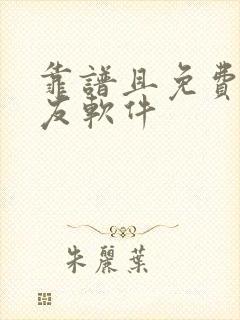 靠譜且免費
友軟件
朱麗葉